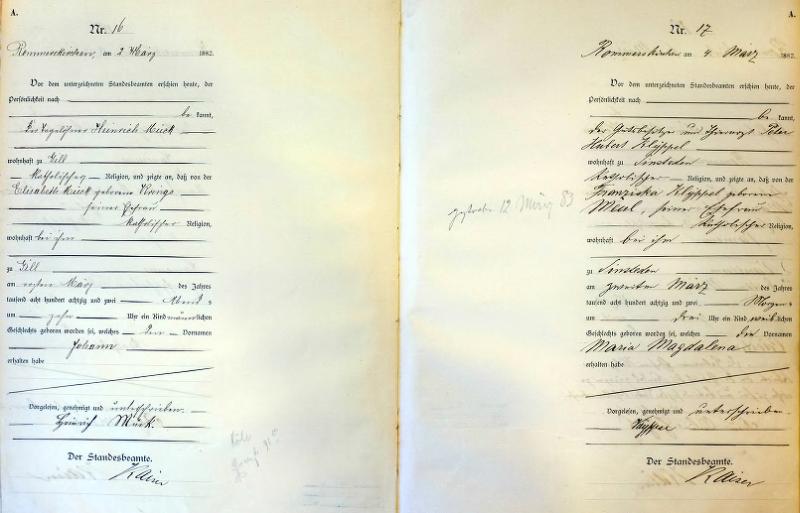 A.
Nr. 16
Rommerskirchen, am 2 März 1882.
Vor dem unterzeichneten Standesbeamten erschien heute, der
Persönlichkeit nach
be kannt,
der Tagelöhner Heinrich Mück
wohnhaft zu Gill
katholischer Religion, und zeigte an, daß von der
Elisabeth Mück geborene
seiner Ehefrau
katholischer Religion,
wohnhaft bei ihm
zu Gill
am ersten März des Jahres
tausend acht hundert achtzig und zwei Abends
um zehn Uhr ein Kind männlichen
Geschlechts geboren worden sei, welches den Vornamen
Johann
erhalten habe
Vorgelesen, genehmigt und unterschrieben.
Heinrich Mück.
Der Standesbeamte.
Kaiser
A.
Nr. 17
Rommerskirchen am 4. März 1882.
Vor dem unterzeichneten Standesbeamten erschien heute, der
Persönlichkeit nach
be kannt,
der Gutsbesitzer und Thierarzt Peter
Hubert Klÿppel
wohnhaft zu Sinsteden
katholischer Religion, und zeigte an, daß von der
Franziska Klÿppel geborene
seiner Ehefrau
katholischer Religion,
wohnhaft bei ihm
zu Sinsteden
am zweiten März des Jahres
tausend acht hundert achtzig und zwei Morgens
um drei Uhr ein Kind weiblichen
Geschlechts geboren worden sei, welches den Vornamen
Maria Magdalena
erhalten habe
Vorgelesen, genehmigt und unterschrieben
Der Standesbeamte.
Kaiser
12 März 83